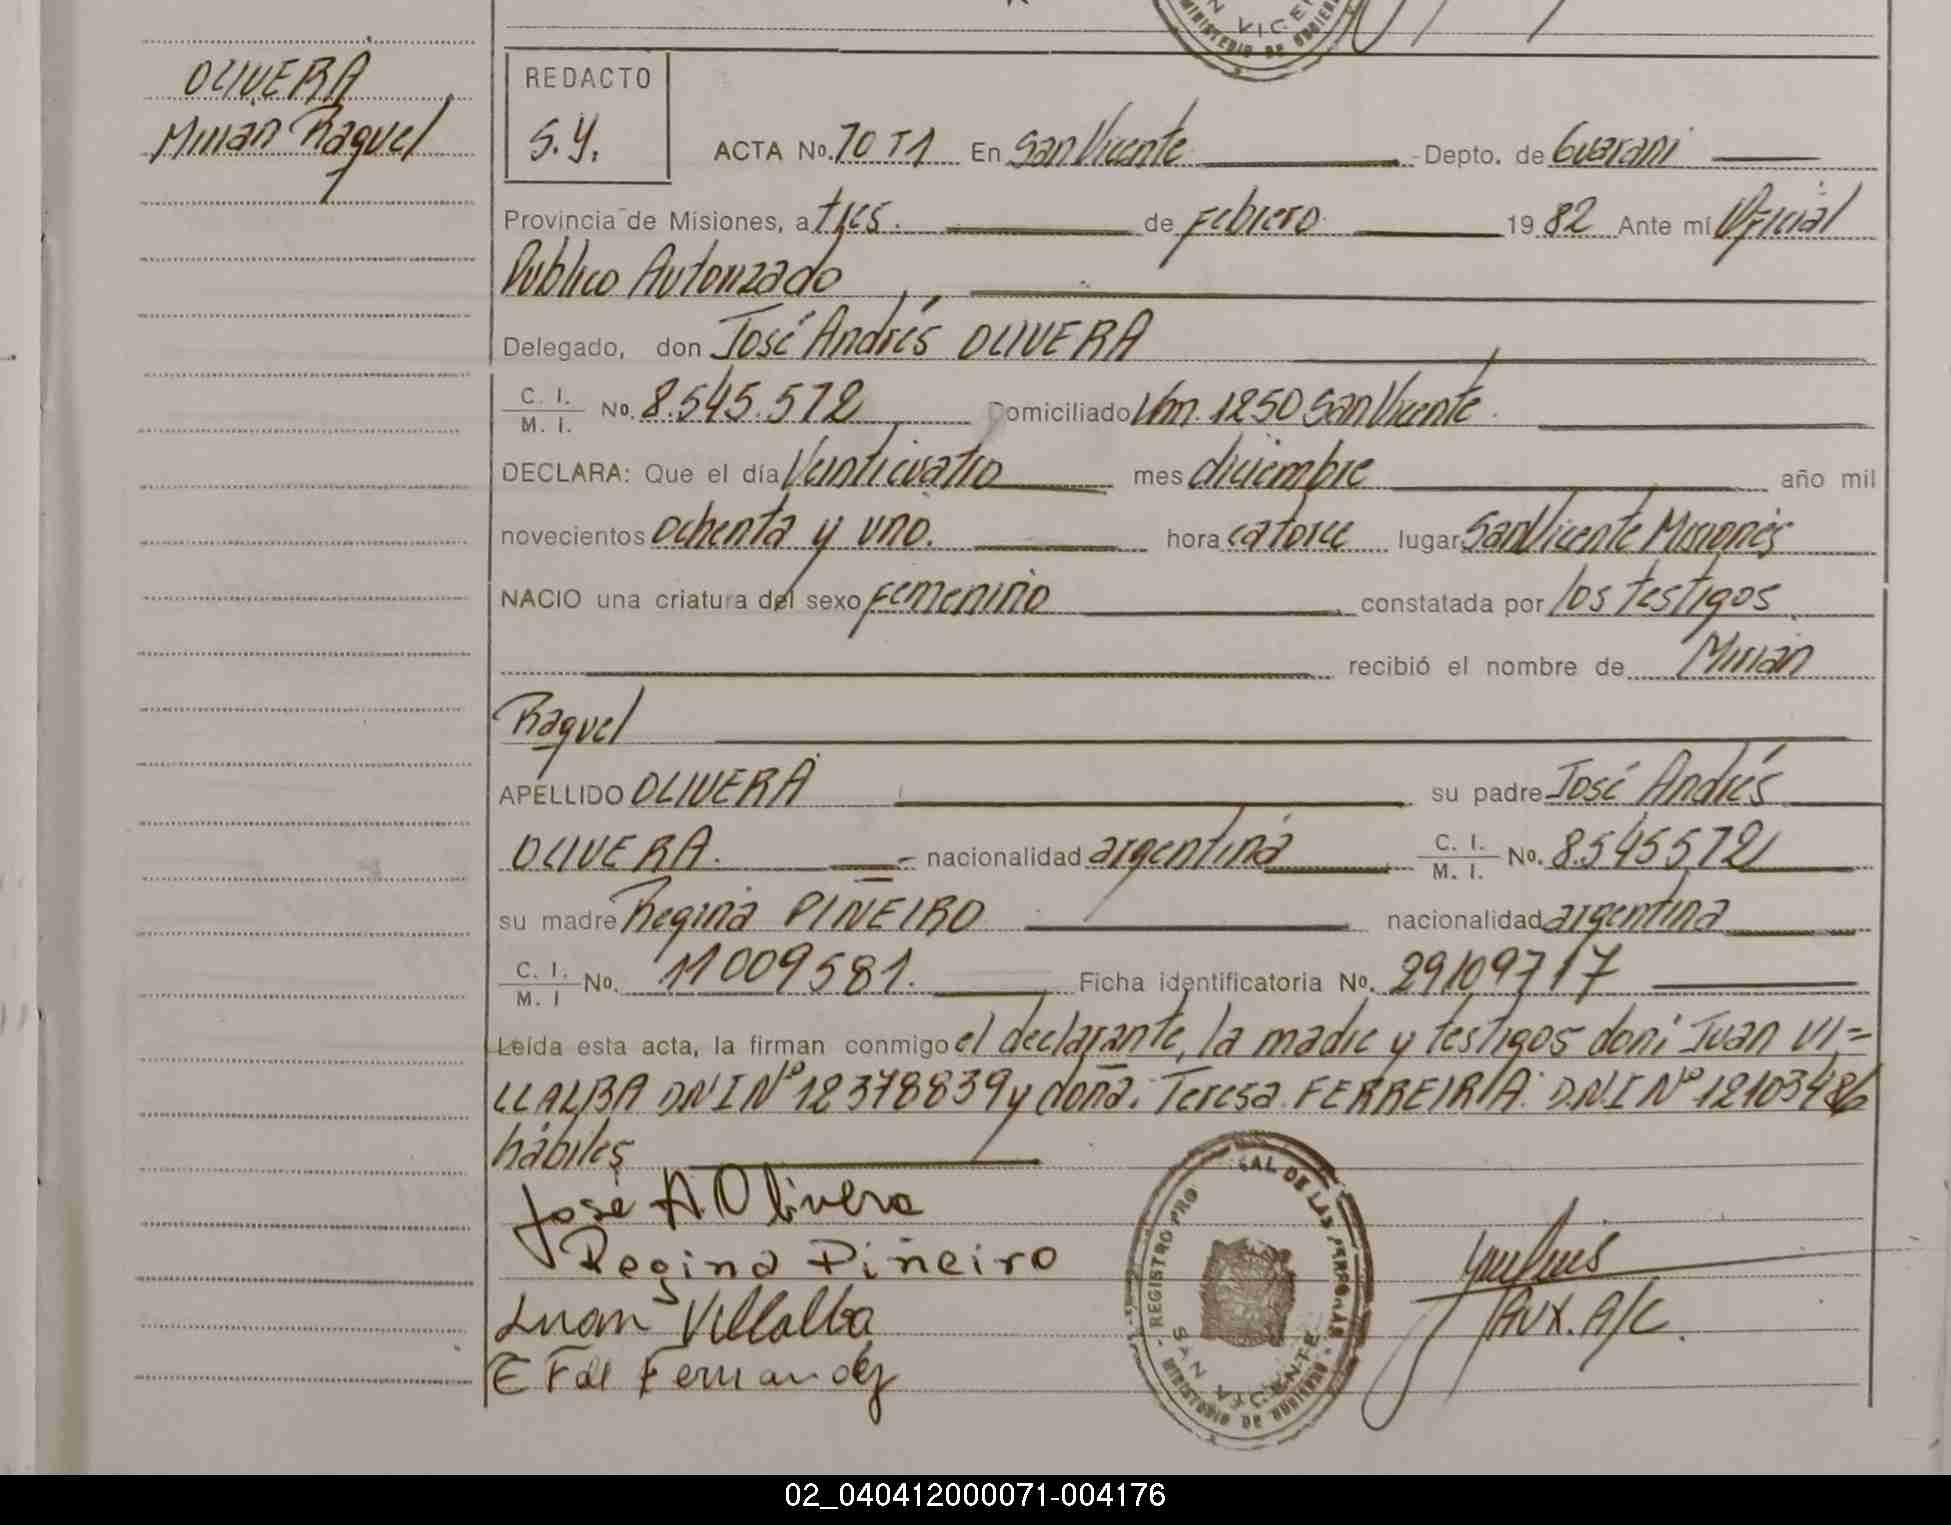 OLIVERA
Mirian Raquel
1
REDACTO
S.Y.
ACTA No. 70 T1 En San Vicente Depto. de Guarani
Provincia de Misiones, a tres. de Febrero 19 82 Ante mí Oficial
Publico Autorizado
Delegado, don José Andrés OLIVERA
C. I. / M. I. No. 8.545.572 Domiciliado Km. 1250 San Vicente.
DECLARA: Que el día Veinticuatro mes diciembre año mil
novecientos ochenta y uno. hora catorce lugar San Vicente Misiones
NACIO una criatura del sexo femenino constatada por los testigos
recibió el nombre de Mirian
Raquel
APELLIDO OLIVERA su padre José Andrés
OLIVERA. nacionalidad argentina C. I. / M. I. No. 8.545572
su madre Regina PIÑEIRO nacionalidad argentina
C. I. / M. I No. 11009581. Ficha identificatoria No.
Leída esta acta, la firman conmigo el declarante, la madre y testigos don: Juan VI=
LLALBA DNI Nº 12378839 y doña: Teresa FERREIRA D.N.I Nº
hábiles
José A Olivera
Regina Piñeiro
Juan Villalba
Fernandez
AUX. A/C.
REGISTRO PRO AL DE LAS PERSONAS
SAN VICENTE
MINISTERIO DE GOBIERNO
02_040412000071-004176